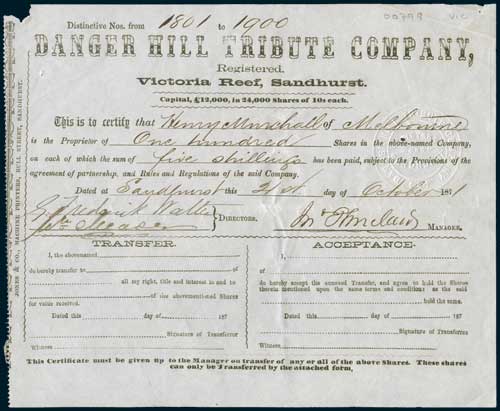 00799 VIC
Distinctive Nos. from 1801 to 1900
DANGER HILL TRIBUTE COMPANY,
Registered.
Victoria Reef, Sandhurst.
Capital, £12,000, in 24,000 Shares of 10s each.
This is to certify that Henry Marshall of Melbourne
is the Proprietor of One hundred Shares in the above-named Company,
on each of which the sum of five shillings has been paid, subject to the Provisions of the
agreement of partnership, and Rules and Regulations of the said Company.
Dated at Sandhurst this 21st day of October 1871
DIRECTORS.
MANAGER.
JONES & CO., MACHINE PRINTERS, BULL STREET, SANDHURST.
TRANSFER.
I, the abovenamed
do hereby transfer to of
all my right, title and interest in and to
of the abovementioned Shares
for value received.
Dated this day of 187
Signature of Transferror
Witness
ACCEPTANCE.
I,
of
do hereby accept the annexed Transfer, and agree to hold the Shares
therein mentioned upon the same terms and conditions as the said
held the same.
Dated this day of 187
Signature of Transferree
Witness
This Certificate must be given up to the Manager on transfer of any or all of the above Shares. These shares
can only be Transferred by the attached form,